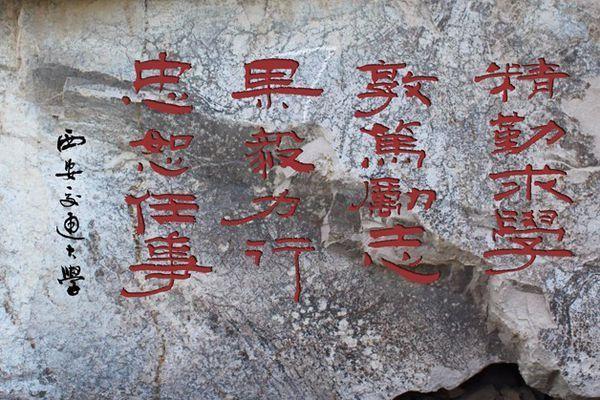 精勤求學
敦篤勵志
果毅力行
忠恕任事
西安交通大學